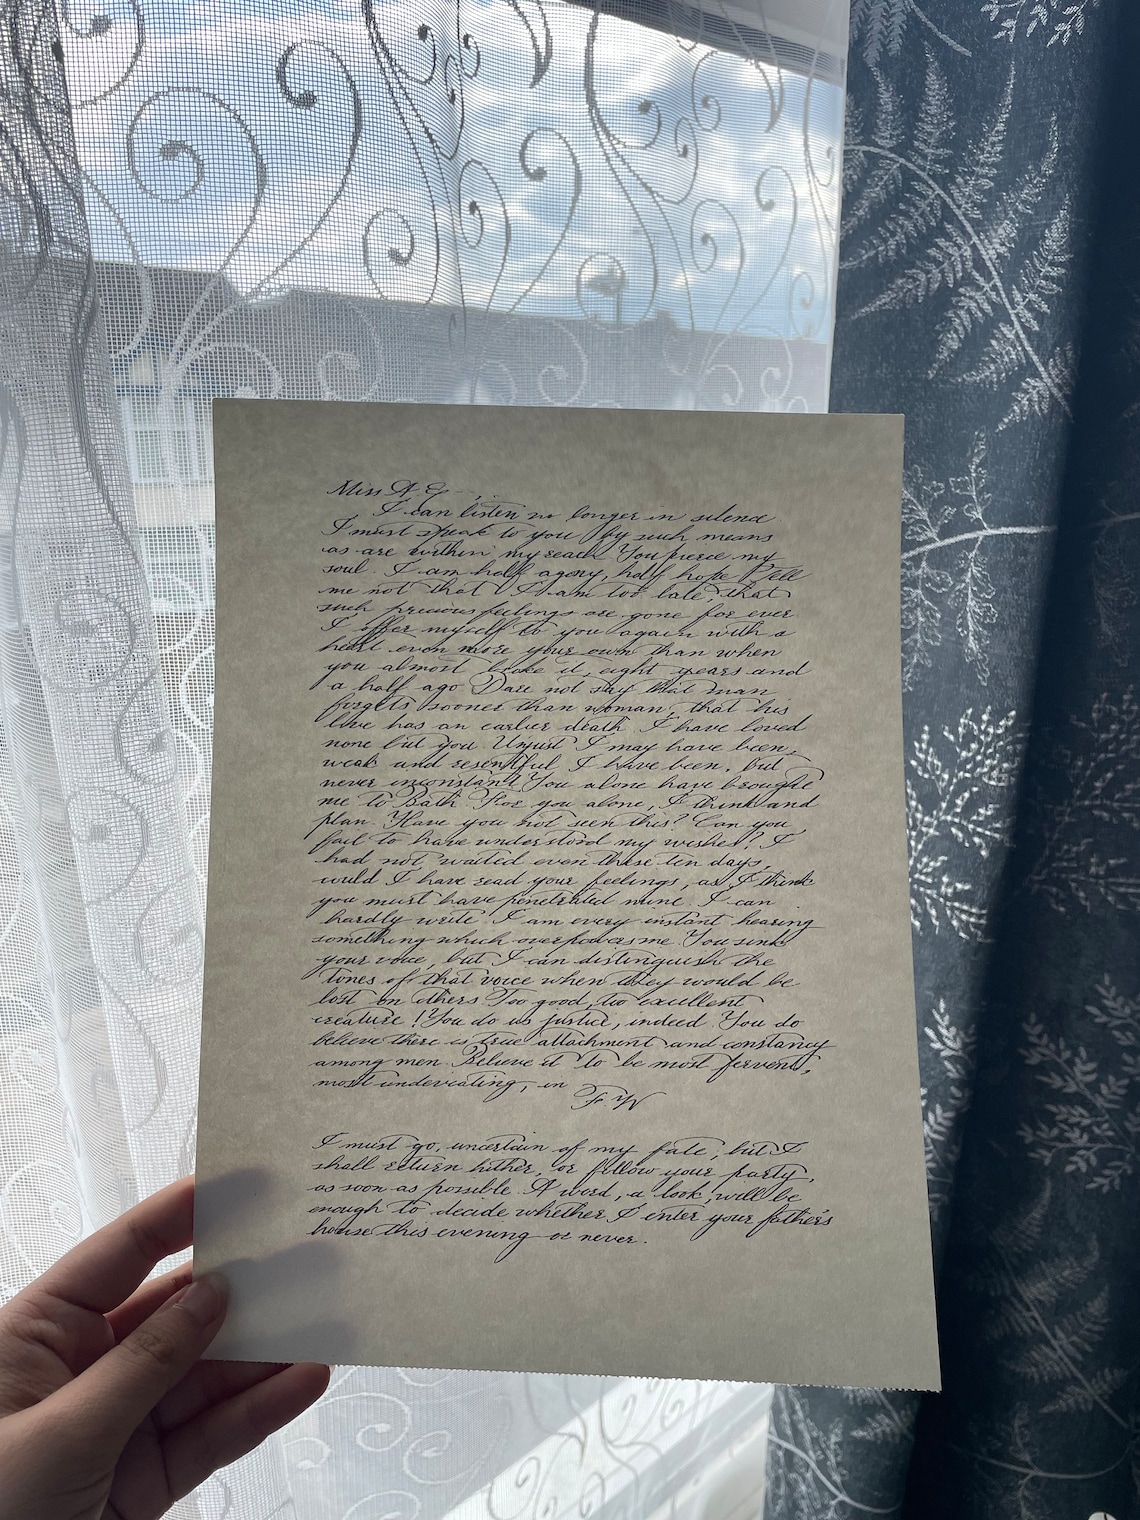 Miss A. E
I can listen no longer in silence.
I must speak to you by such means
as are within my reach. You pierce my
soul. I am half agony, half hope. Tell
me not that I am too late, that
such precious feelings are gone for ever.
I offer myself to you again with a
heart even more your own than when
you almost broke it, eight years and
a half ago. Dare not say that man
forgets sooner than woman, that his
love has an earlier death. I have loved
none but you. Unjust I may have been,
weak and resentful I have been, but
never inconstant. You alone have brought
me to Bath. For you alone, I think and
plan. Have you not seen this? Can you
fail to have understood my wishes? I
had not waited even these ten days,
could I have read your feelings, as I think
you must have penetrated mine. I can
hardly write. I am every instant hearing
something which overpowers me. You sink
your voice, but I can distinguish the
tones of that voice when they would be
lost on others. Too good, too excellent
creature! You do us justice, indeed. You do
believe there is true attachment and constancy
among men. Believe it to be most fervent,
most undeviating, in
F. W
I must go, uncertain of my fate; but I
shall return hither, or follow your party,
as soon as possible. A word, a look, will be
enough to decide whether I enter your father's
house this evening or never.